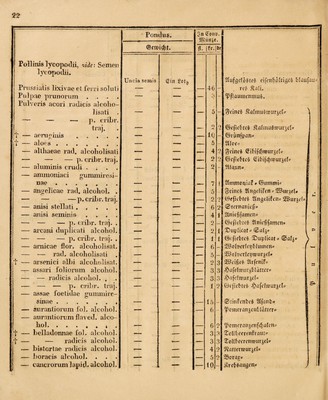 22
Pondus.
Gewicht.
In Conv.
Münze.
fl. kr. dr
Pollinis lycopodii, vide: Semen
lycopodii.
Uncia semis Ein Loth
Prussiatis lixivae et ferri soluti — — — 46
Pulpae prunorum — — — Pflaumenmus.
Pulveris acori radicis alcoho-
lisati Feines Kalmuswurzel-
— — — p. cribr.
traj. Gesiebtes Kalmuswurzel-
— aeruginis — — — 10 Grünspan-
— aloes — — — 5 Aloe-
— althaeae rad, alcoholisati — — — 4 Feines Eibischwurzel-
— — — p. cribr. traj. — — — 2 Gesiebtes Eibischwurzel-
— aluminis crudi — — — Alaun-
— ammoniaci gummiresi-
nae — — — 7 Ammoniak-Gummi-
— angelicae rad, alcohol. — — — 5 Feines Angeliken-Wurzel-
— — — p. cribr. traj. — — — 2 Gesiebtes Angeliken-Wurzel-
— anisi stellati — — — 6 Sternanies-
— anisi seminis — — — 4 Aniessamen-
— — — p. cribr. traj. — — — 2 Gesiebtes Aniessamen-
— arcani duplicati alcohol. — — — 2 Duplicat-Salz-
— — — p. cribr. traj. — — — 1 Gesiebtes Duplicat-Salz-
— arnicae flor. alcoholisat. — — — 6 Wolverleyblumen-
— — rad. alcoholisati — — — 5 Wolverleywurzel-
— arsenici albi alcoholisat. — — — 2 Weißes Arsenik-
— assari foliorum alcohol. — — — 3 Haselwurzblätter-
— — radicis alcohol. — — — 3 Haselwurzel-
— — — p. cribr. traj. — — — 1 Gesiebtes Haselwurzel-
— assae foetidae gummire-
sinae — — — 15 Stinkendes Asand-
— aurantiorum fol. alcohol. — — — 6 Pomeranzenblätter-
— aurantiorum flaved. alco-
hol. — — — 6 Pomeranzenschalen-
— belladonnae fol. alcohol. — — — 3 Tollbeerenkraut-
— — radicis alcohol. — — — 3 Tollbeerenwurzel-
— bistortae radicis alcohol. — — — 4 Natterwurzel-
— boracis alcohol. — — — 5 Borax-
— cancrorum lapid. alcohol. — — — 10 Krebsaugen-